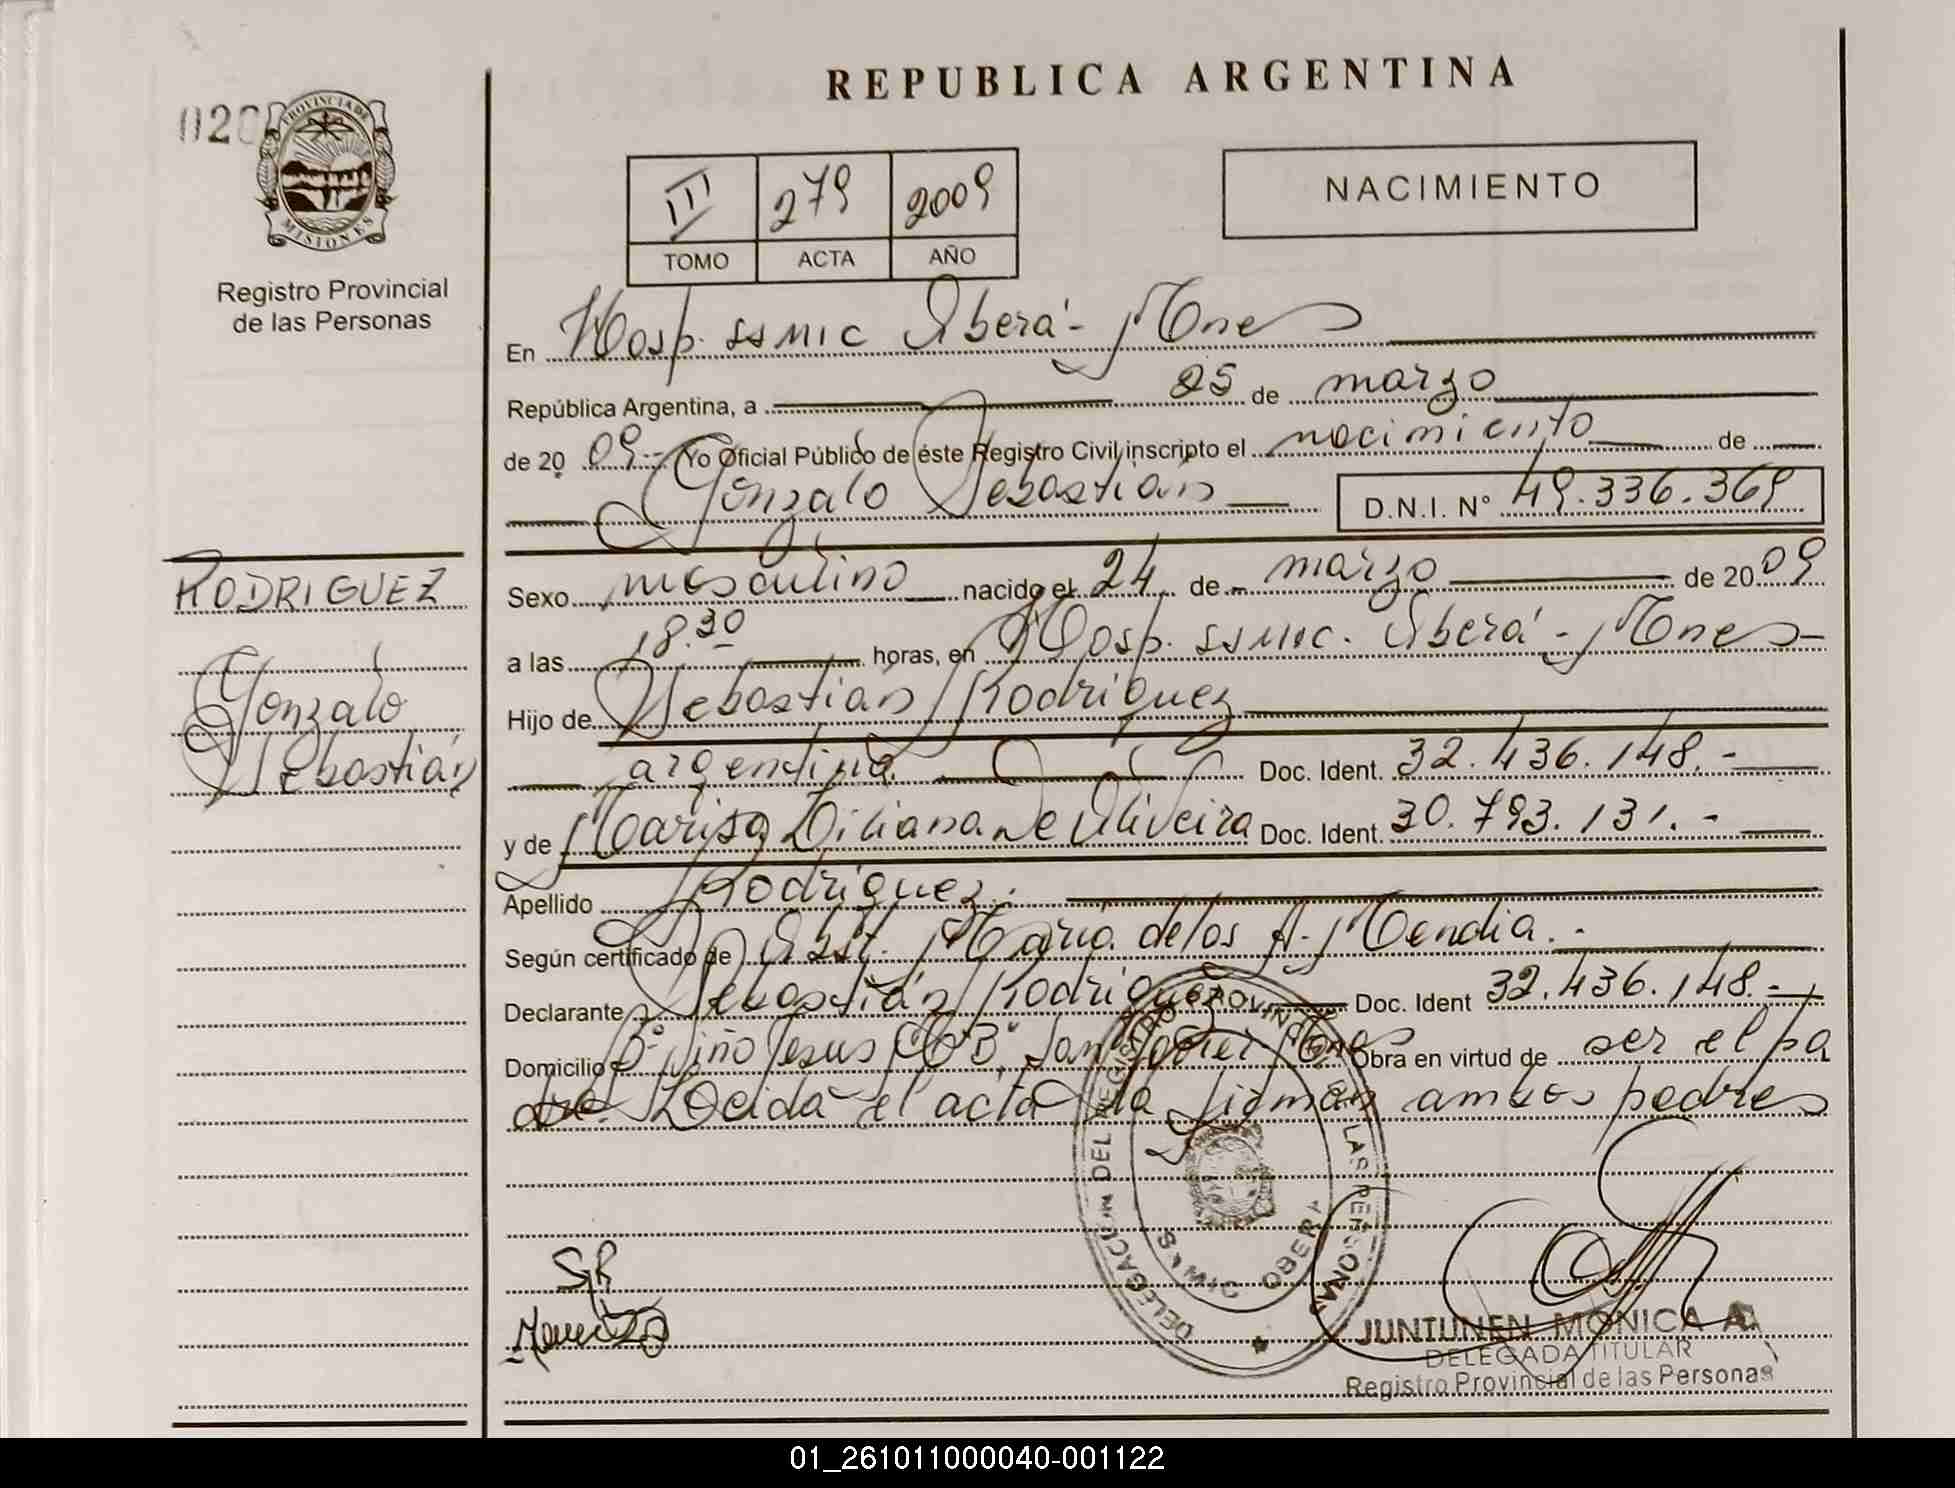 REPUBLICA ARGENTINA
020
PROVINCIA DE
MISIONES
Registro Provincial
de las Personas
III 279 2009
TOMO ACTA AÑO
NACIMIENTO
En Hosp. SSMIC Oberá - Mnes
República Argentina, a 25 de marzo
de 2009.- Yo Oficial Público de éste Registro Civil inscripto el nacimiento de
Gonzalo Sebastián D.N.I. Nº 49.336.369
RODRIGUEZ
Gonzalo
Sebastián
Sexo masculino nacido el 24 de - marzo de 2009
a las 18.30 horas, en Hosp. SSMIC. Oberá - Mnes -
Hijo de Sebastián Rodriguez
argentina Doc. Ident. 32.436.148.-
y de Marisa Liliana De Oliveira Doc. Ident. 30.793.131.-
Apellido Rodriguez.
Según certificado de Obst. María de los A. Mendia.-
Declarante Sebastián Rodriguez Doc. Ident 32.436.148.-
Domicilio Bº Niño Jesus San Javier Mnes Obra en virtud de ser el pa
dre. Leida el acta la firman ambos padres
DELEGACION DEL REGISTRO PROVINCIAL DE LAS PERSONAS
OBERA
SR
JUNTUNEN MONICA A.
DELEGADA TITULAR
Registro Provincial de las Personas
01_261011000040-001122